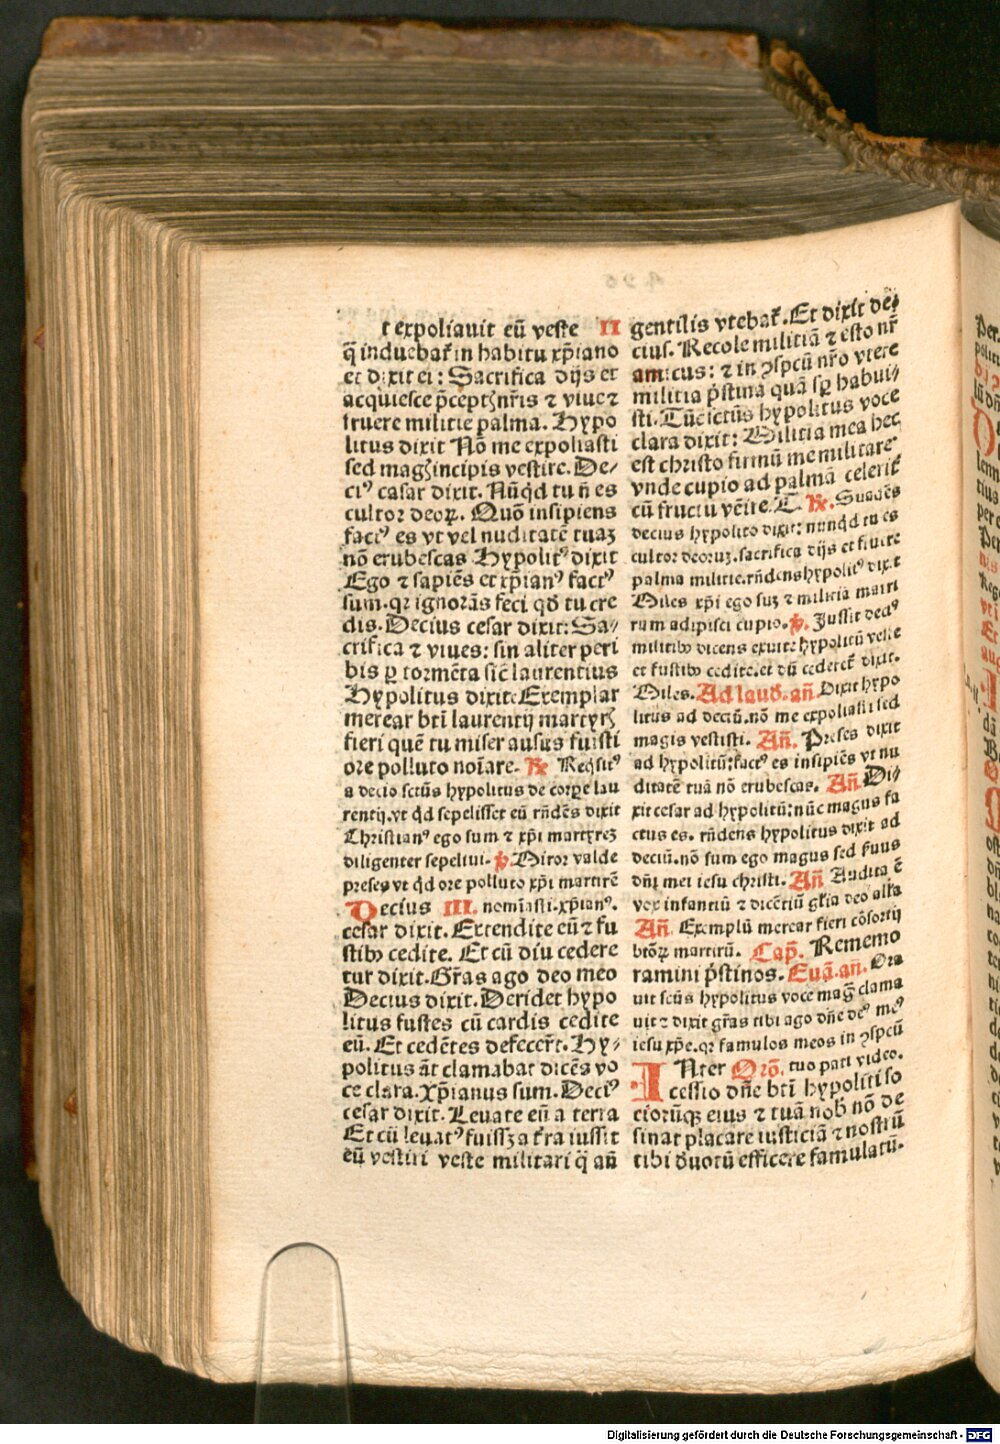 t expoliauit eū veste II
q̄ induebat᷑ in habitu xp̄iano
et dixit ei: Sacrifica dijs et
acquiesce p̄ceptꝫ nr̄is ⁊ viue ⁊
fruere militie palma. Hypo
litus dixit Nō me expoliasti
sed magꝫ incipis vestire. De⸗
ciꝰ cesar dixit. Nūqd tu n̄ es
cultor deoꝝ. Quō insipiens
factꝰ es vt vel nuditatē tuaꝫ
nō erubescas Hypolitꝰ dixit
Ego ⁊ sapiēs et xp̄ianꝰ factꝰ
sum. qꝛ ignorās feci qd̄ tu cre
dis. Decius cesar dixit: Sa⸗
crifica ⁊ viues: sin aliter peri
bis ꝑ tormēta sic̄ laurentius
Hypolitus dixit: Exemplar
merear bt̄i laurentij martyrꝫ
fieri quē tu miser ausus fuisti
ore polluto noīare. ℟ Reqsitꝰ
a decio sctūs hypolitus de corꝑe lau
rentij. vt qd sepelisset eū rn̄dēs dixit
Christianꝰ ego sum ⁊ xp̄i martyreꝫ
diligenter sepeliui. ꝟ. Miror valde
preses vt qd ore polluto xp̄i martirē
Decius III. nomīasti. xp̄ianꝰ.
cesar dixit. Extendite eū ⁊ fu
stibꝰ cedite. Et cū diu cedere
tur dixit. Gr̄as ago deo meo
Decius dixit. Deridet hypo
litus fustes cū cardis cedite
eū. Et cedētes defecer̄t. Hy⸗
politus āt clamabat dicēs vo
ce clara. Xp̄ianus sum. Deciꝰ
cesar dixit. Leuate eū a terra
Et cū leuatꝰ fuissꝫ a t̄ra iussit
eū vestiri veste militari q̄ an̄
gentilis vtebat᷑. Et dixit de⸗
cius. Recole militiā ⁊ esto nr̄
amicus: ⁊ in ꝯspcū nr̄o vtere
militia p̄stina quā sꝑ habui⸗
sti. Tūc sctūs hypolitus voce
clara dixit: Militia mea hec
est christo firmū me militare
vnde cupio ad palmā celerit᷑
cū fructu vēire. T. ℟. Suadēs
decius hypolito dixit: nunqd tu es
cultor deoruꝫ. sacrifica dijs et fruere
palma militie. rn̄dens hypolitꝰ dixit
Miles xp̄i ego suꝫ ⁊ militia matri
rum adipisci cupio. ꝟ. Jussit deciꝰ
militibꝰ dicens exuite hypolitū veste
et fustibꝰ cedite. et dū cederet᷑ dixit.
Miles. Ad laud. an̄. Dixit hypo
litus ad deciū. nō me expoliasti sed
magis vestisti. An̄. Preses dixit
ad hypolitū: factꝰ es insipiēs vt nu
ditatē tuā nō erubescas. An̄ Di⸗
xit cesar ad hypolitū: nūc magus fa
ctus es. rn̄dens hypolitus dixit ad
deciū. nō sum ego magus sed ẜuus
dn̄i mei iesu christi. An̄ Audita ē
vox infantiū ⁊ dicētiū gl̄ia deo all̄a
An̄. Exemplū merear fieri cōsortij
btōꝝ martirū. Cap̄. Rememo
ramini p̄stinos. Euā. an̄. Ora
uit scūs hypolitus voce mag᷑ clama
uit ⁊ dixit gr̄as tibi ago dn̄e deꝰ meꝰ
iesu xp̄e. qꝛ famulos meos in ꝯspcū
INter Orō. tuo pati video.
cessio dn̄e bt̄i hypoliti so
ciorūqꝫ eius ⁊ tuā nob̄ nō de
sinat placare iusticiā ⁊ nostrū
tibi d̄uotū efficere famulatū.
Digitalisierung gefördert durch die Deutsche Forschungsgemeinschaft - DFG